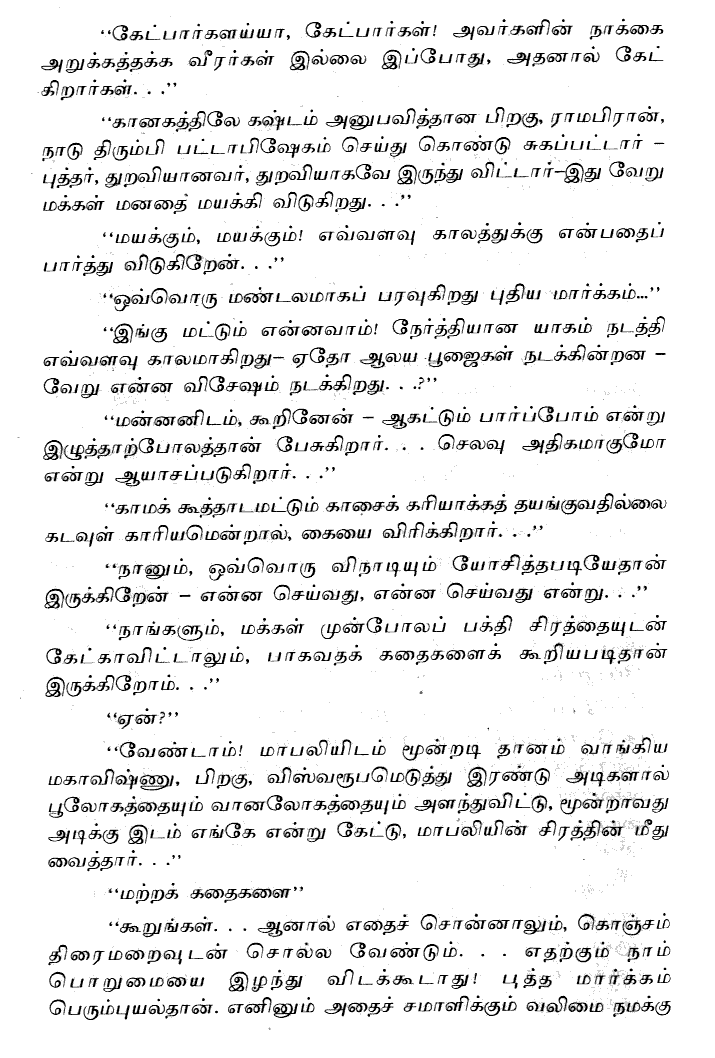 ‘‘கேட்பார்களய்யா, கேட்பார்கள்! அவர்களின் நாக்கை
அறுக்கத்தக்க வீரர்கள் இல்லை இப்போது, அதனால் கேட்
கிறார்கள். . .’’
‘‘கானகத்திலே கஷ்டம் அனுபவித்தான பிறகு, ராமபிரான்,
நாடு திரும்பி பட்டாபிஷேகம் செய்து கொண்டு சுகப்பட்டார் –
புத்தர், துறவியானவர், துறவியாகவே இருந்து விட்டார்–இது வேறு
மக்கள் மனதை மயக்கி விடுகிறது. . .’’
‘‘மயக்கும், மயக்கும்! எவ்வளவு காலத்துக்கு என்பதைப்
பார்த்து விடுகிறேன். . .’’
‘‘ஒவ்வொரு மண்டலமாகப் பரவுகிறது புதிய மார்க்கம்...’’
‘‘இங்கு மட்டும் என்னவாம்! நேர்த்தியான யாகம் நடத்தி
எவ்வளவு காலமாகிறது– ஏதோ ஆலய பூஜைகள் நடக்கின்றன –
வேறு என்ன விசேஷம் நடக்கிறது. . .?’’
‘‘மன்னனிடம், கூறினேன் – ஆகட்டும் பார்ப்போம் என்று
இழுத்தாற்போலத்தான் பேசுகிறார். . . செலவு அதிகமாகுமோ
என்று ஆயாசப்படுகிறார். . .’’
‘‘காமக் கூத்தாடமட்டும் காசைக் கரியாக்கத் தயங்குவதில்லை
கடவுள் காரியமென்றால், கையை விரிக்கிறார். . .’’
‘‘நானும், ஒவ்வொரு விநாடியும் யோசித்தபடியேதான்
இருக்கிறேன் – என்ன செய்வது, என்ன செய்வது என்று. . .’’
‘‘நாங்களும், மக்கள் முன்போலப் பக்தி சிரத்தையுடன்
கேட்காவிட்டாலும், பாகவதக் கதைகளைக் கூறியபடிதான்
இருக்கிறோம். . .’’
‘‘ஏன்?’’
‘‘வேண்டாம்! மாபலியிடம் மூன்றடி தானம் வாங்கிய
மகாவிஷ்ணு, பிறகு, விஸ்வரூபமெடுத்து இரண்டு அடிகளால்
பூலோகத்தையும் வானலோகத்தையும் அளந்துவிட்டு, மூன்றாவது
அடிக்கு இடம் எங்கே என்று கேட்டு, மாபலியின் சிரத்தின் மீது
வைத்தார். . .’’
‘‘மற்றக் கதைகளை’’
‘‘கூறுங்கள். . . ஆனால் எதைச் சொன்னாலும், கொஞ்சம்
திரைமறைவுடன் சொல்ல வேண்டும். . . எதற்கும் நாம்
பொறுமையை இழந்து விடக்கூடாது! புத்த மார்க்கம்
பெரும்புயல்தான். எனினும் அதைச் சமாளிக்கும் வலிமை நமக்கு